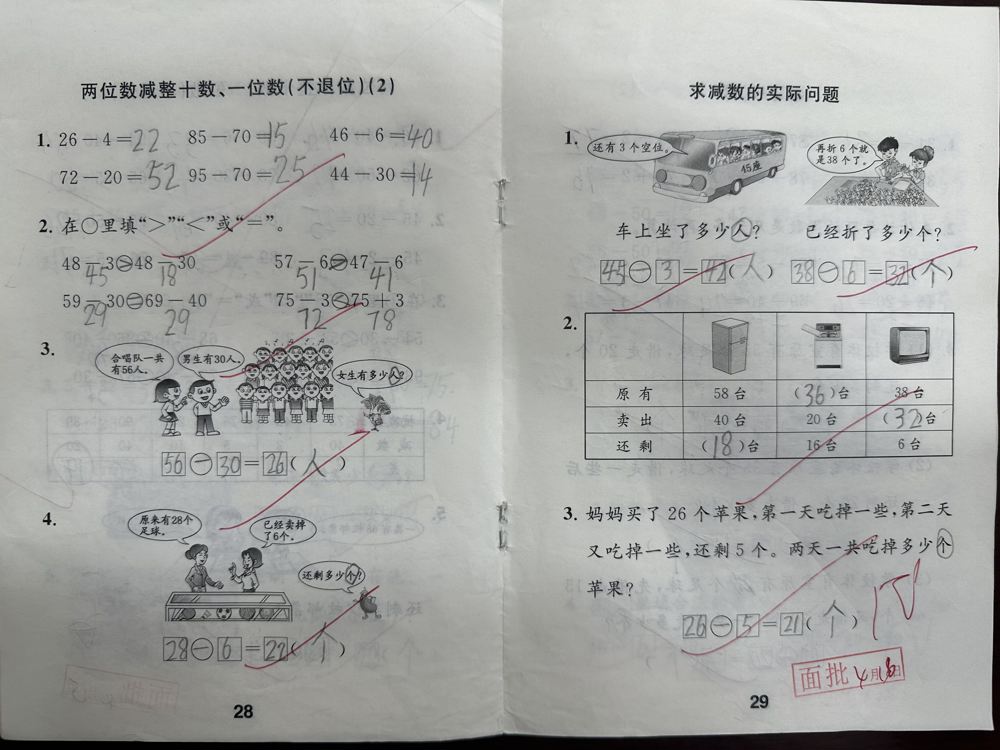 两位数减整十数、一位数(不退位)(2)
1. 26-4=22 85-70=15 46-6=40
72-20=52 95-70=25 44-30=14
2. 在○里填“>”“<”或“=”。
48-3>48-30 57-6>47-6
45 18 51 41
59-30=69-40 75-3<75+3
29 29 72 78
3.
合唱队一共
有56人。
男生有30人。
女生有多少人?
56-30=26(人)
4.
原来有28个
足球。
已经卖掉
了6个。
还剩多少个?
28-6=22(个)
面批
28
求减数的实际问题
1.
还有3个空位。
45座
再折6个就
是38个了。
车上坐了多少人? 已经折了多少个?
45-3=42(人) 38-6=32(个)
2.
原有 58台 (36)台 38台
卖出 40台 20台 (32)台
还剩 (18)台 16台 6台
3. 妈妈买了26个苹果,第一天吃掉一些,第二天
又吃掉一些,还剩5个。两天一共吃掉多少个
苹果?
26-5=21(个)
面批 4月 日
29